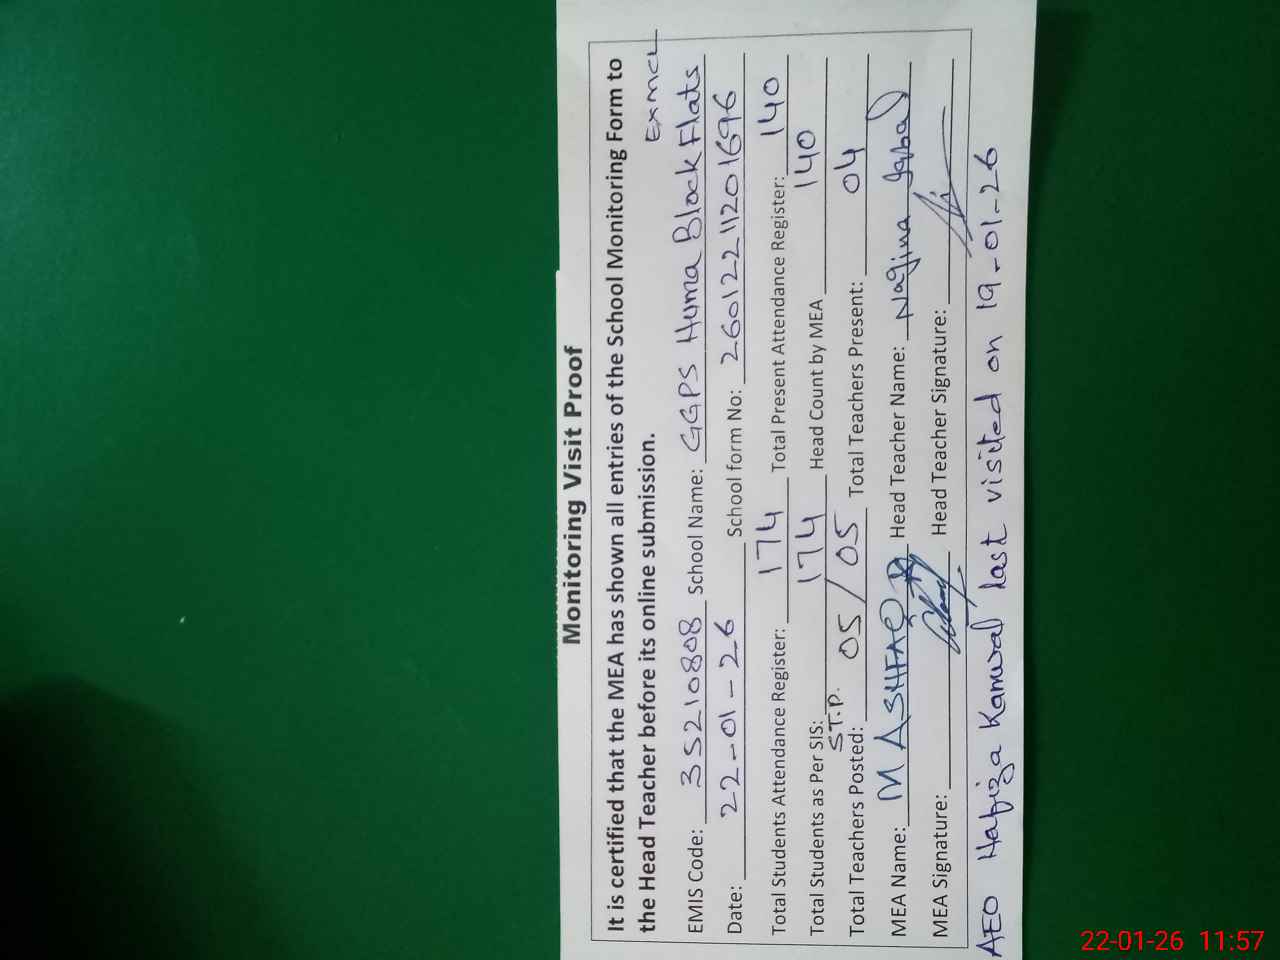 Monitoring Visit Proof
It is certified that the MEA has shown all entries of the School Monitoring Form to
the Head Teacher before its online submission.
Exmcl
EMIS Code: 35210808 School Name: GGPS Huma Block Flats
Date: 22-01-26 School form No: 26012211201696
Total Students Attendance Register: 174 Total Present Attendance Register: 140
Total Students as Per SIS: 174 Head Count by MEA 140
S.T.P.
Total Teachers Posted: 05/05 Total Teachers Present: 04
MEA Name: M ASHFAQ Head Teacher Name: Nagina Iqbal
MEA Signature: Head Teacher Signature:
AEO Hafiza Kanwal last visited on 19-01-26
22-01-26 11:57